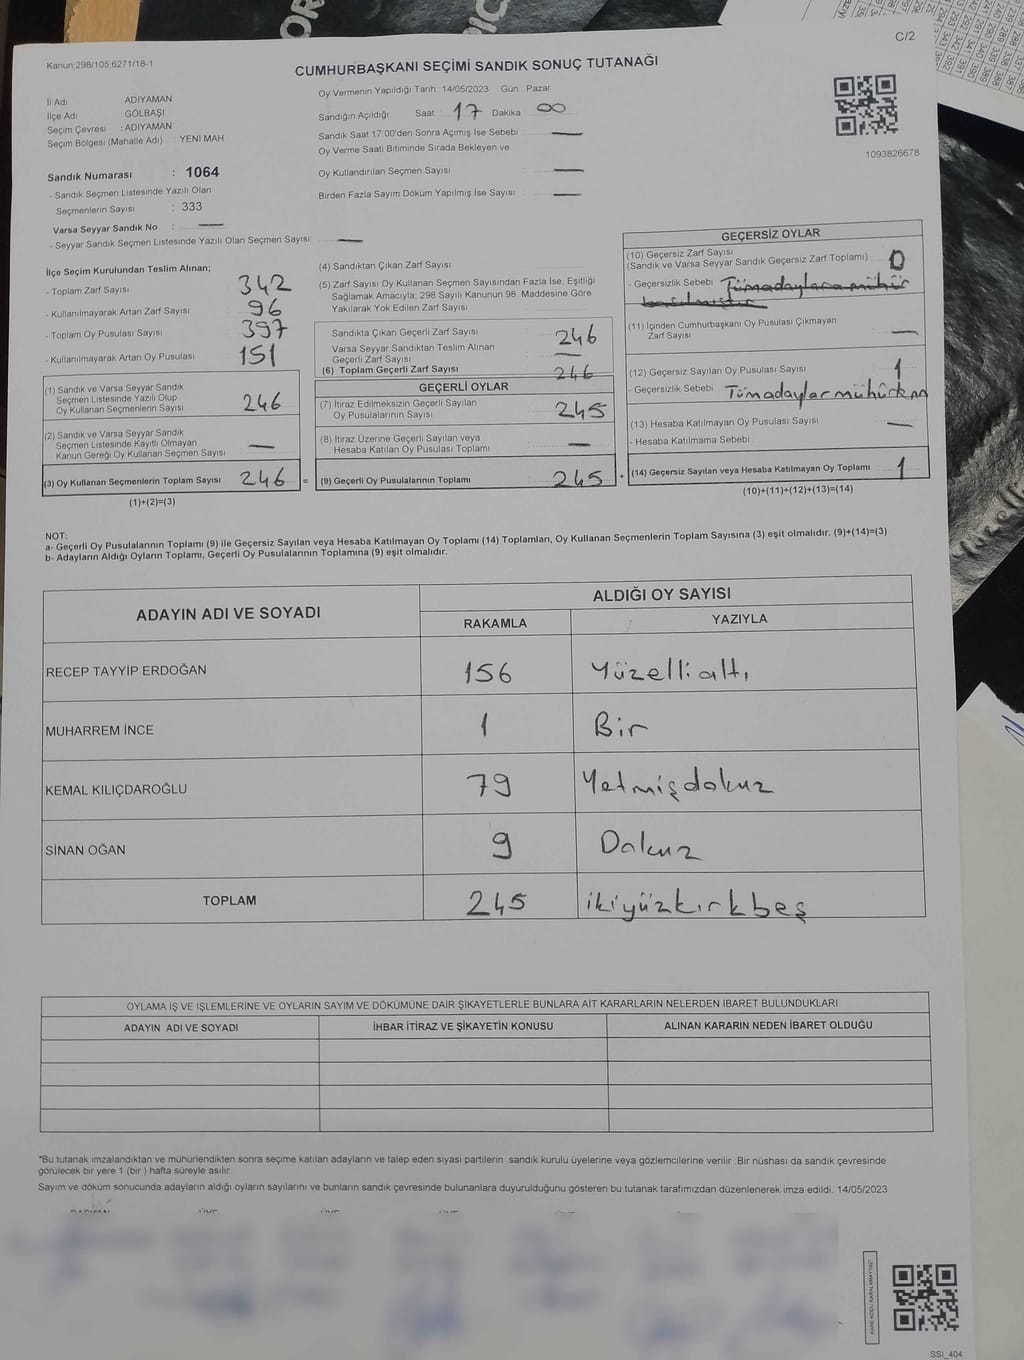 C/2
Kanun:298/105,6271/18-1
CUMHURBAŞKANI SEÇİMİ SANDIK SONUÇ TUTANAĞI
İl Adı ADIYAMAN
İlçe Adı GÖLBAŞI
Seçim Çevresi : ADIYAMAN
Seçim Bölgesi (Mahalle Adı) YENİ MAH
Oy Vermenin Yapıldığı Tarih 14/05/2023 Gün Pazar
Sandığın Açıldığı Saat 17 Dakika 00
Sandık Saat 17:00'den Sonra Açımış İse Sebebi —
Oy Verme Saati Bitiminde Sırada Bekleyen ve
Oy Kullandırılan Seçmen Sayısı —
Birden Fazla Sayım Döküm Yapılmış İse Sayısı —
1093826678
Sandık Numarası : 1064
- Sandık Seçmen Listesinde Yazılı Olan
Seçmenlerin Sayısı : 333
Varsa Seyyar Sandık No : —
- Seyyar Sandık Seçmen Listesinde Yazılı Olan Seçmen Sayısı —
İlçe Seçim Kurulundan Teslim Alınan;
- Toplam Zarf Sayısı 342
- Kullanılmayarak Artan Zarf Sayısı 96
- Toplam Oy Pusulası Sayısı 397
- Kullanılmayarak Artan Oy Pusulası 151
(1) Sandık ve Varsa Seyyar Sandık
Seçmen Listesinde Yazılı Olup
Oy Kullanan Seçmenlerin Sayısı 246
(2) Sandık ve Varsa Seyyar Sandık
Seçmen Listesinde Kayıtlı Olmayan
Kanun Gereği Oy Kullanan Seçmen Sayısı —
(3) Oy Kullanan Seçmenlerin Toplam Sayısı 246 =
(1)+(2)=(3)
(4) Sandıktan Çıkan Zarf Sayısı
(5) Zarf Sayısı Oy Kullanan Seçmen Sayısından Fazla İse, Eşitliği
Sağlamak Amacıyla; 298 Sayılı Kanunun 98. Maddesine Göre
Yakılarak Yok Edilen Zarf Sayısı
Sandıkta Çıkan Geçerli Zarf Sayısı 246
Varsa Seyyar Sandıktan Teslim Alınan
Geçerli Zarf Sayısı —
(6) Toplam Geçerli Zarf Sayısı 246
GEÇERLİ OYLAR
(7) İtiraz Edilmeksizin Geçerli Sayılan
Oy Pusulalarının Sayısı 245
(8) İtiraz Üzerine Geçerli Sayılan veya
Hesaba Katılan Oy Pusulası Toplamı —
(9) Geçerli Oy Pusulalarının Toplamı 245 +
GEÇERSİZ OYLAR
(10) Geçersiz Zarf Sayısı
(Sandık ve Varsa Seyyar Sandık Geçersiz Zarf Toplamı) 0
- Geçersizlik Sebebi Tümadaylara mühür
basılmıştır
(11) İçinden Cumhurbaşkanı Oy Pusulası Çıkmayan
Zarf Sayısı —
(12) Geçersiz Sayılan Oy Pusulası Sayısı 1
- Geçersizlik Sebebi Tümadaylar
(13) Hesaba Katılmayan Oy Pusulası Sayısı —
- Hesaba Katılmama Sebebi
(14) Geçersiz Sayılan veya Hesaba Katılmayan Oy Toplamı 1
(10)+(11)+(12)+(13)=(14)
NOT:
a- Geçerli Oy Pusulalarının Toplamı (9) ile Geçersiz Sayılan veya Hesaba Katılmayan Oy Toplamı (14) Toplamları, Oy Kullanan Seçmenlerin Toplam Sayısına (3) eşit olmalıdır. (9)+(14)=(3)
b- Adayların Aldığı Oyların Toplamı, Geçerli Oy Pusulalarının Toplamına (9) eşit olmalıdır.
ADAYIN ADI VE SOYADI ALDIĞI OY SAYISI
RAKAMLA YAZIYLA
RECEP TAYYİP ERDOĞAN 156 Yüzellialtı
MUHARREM İNCE 1 Bir
KEMAL KILIÇDAROĞLU 79 Yetmişdokuz
SİNAN OĞAN 9 Dokuz
TOPLAM 245 ikiyüzkırkbeş
OYLAMA İŞ VE İŞLEMLERİNE VE OYLARIN SAYIM VE DÖKÜMÜNE DAİR ŞİKAYETLERLE BUNLARA AİT KARARLARIN NELERDEN İBARET BULUNDUKLARI
ADAYIN ADI VE SOYADI İHBAR İTİRAZ VE ŞİKAYETİN KONUSU ALINAN KARARIN NEDEN İBARET OLDUĞU
*Bu tutanak imzalandıktan ve mühürlendikten sonra seçime katılan adayların ve talep eden siyasi partilerin sandık kurulu üyelerine veya gözlemcilerine verilir .Bir nüshası da sandık çevresinde
görülecek bir yere 1 (bir ) hafta süreyle asılır.
Sayım ve döküm sonucunda adayların aldığı oyların sayılarını ve bunların sandık çevresinde bulunanlara duyurulduğunu gösteren bu tutanak tarafımızdan düzenlenerek imza edildi. 14/05/2023
SSI_404